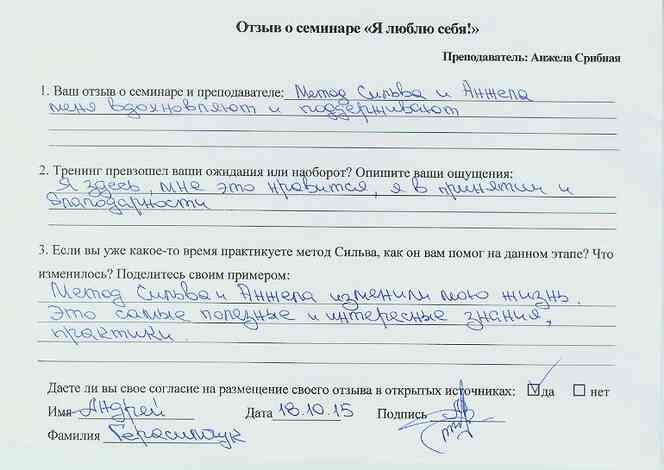 Отзыв о семинаре «Я люблю себя!»
Преподаватель: Анжела Срибная
1. Ваш отзыв о семинаре и преподавателе: Метод Сильва и Анжела
меня вдохновляют и поддерживают
2. Тренинг превзошел ваши ожидания или наоборот? Опишите ваши ощущения:
Я здесь, мне это нравится, я в принятии и
благодарности
3. Если вы уже какое-то время практикуете метод Сильва, как он вам помог на данном этапе? Что
изменилось? Поделитесь своим примером:
Метод Сильва и Анжела изменили мою жизнь.
Это самые полезные и интересные знания,
практики.
Даете ли вы свое согласие на размещение своего отзыва в открытых источниках: да нет
Имя Андрей Дата 18.10.15 Подпись
Фамилия Герасимчук